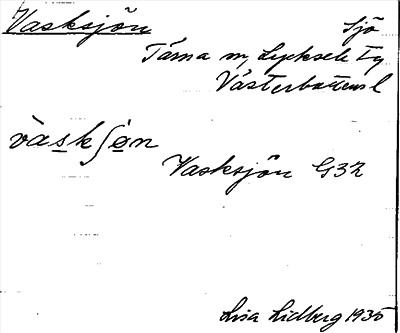 Vasksjön Sjö
Tärna sn, Lycksele Tg
Västerbottens l
vàskʃön
Vasksjön G32
Lisa Lidberg 1935